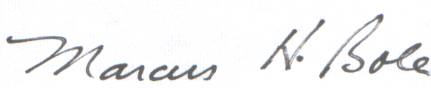 Marcus H. Bole